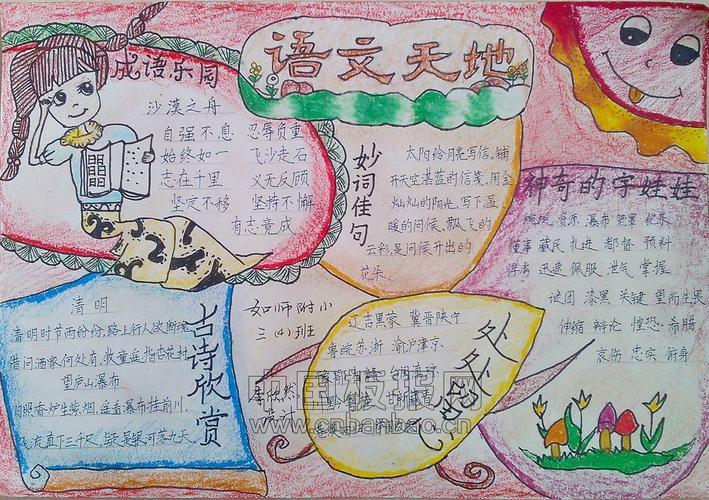 语文天地
成语乐园
沙漠之舟
自强不息 忍辱负重
始终如一 飞沙走石
志在千里 义无反顾
坚定不移 坚持不懈
有志竟成
妙词佳句
太阳给月亮写信。铺
开天空湛蓝的信笺,用金
灿灿的阳光,写下温
暖的问候。飘飞的
云彩,是问候开出的
花朵
神奇的字娃娃
瀑布 笼罩
董事 藏民 扎进 都督 预料
得寿 迅速 佩服 泄气 掌握
谜团 漆黑 关键 望而生畏
伸缩 辩论 惶恐 希腊
哀伤 忠实 俯身
古诗欣赏
清明
清明时节雨纷纷,路上行人欲断魂
借问酒家何处有,牧童遥指杏花村
望庐山瀑布
日照香炉生紫烟,遥看瀑布挂前川
飞流直下三千尺,疑是银河落九天。
如师附小
三(4)班
李欣然
处处留心
辽吉黑蒙 冀晋陕宁
粤皖苏浙 渝沪津京
中国板报网
cnbanbao.cn